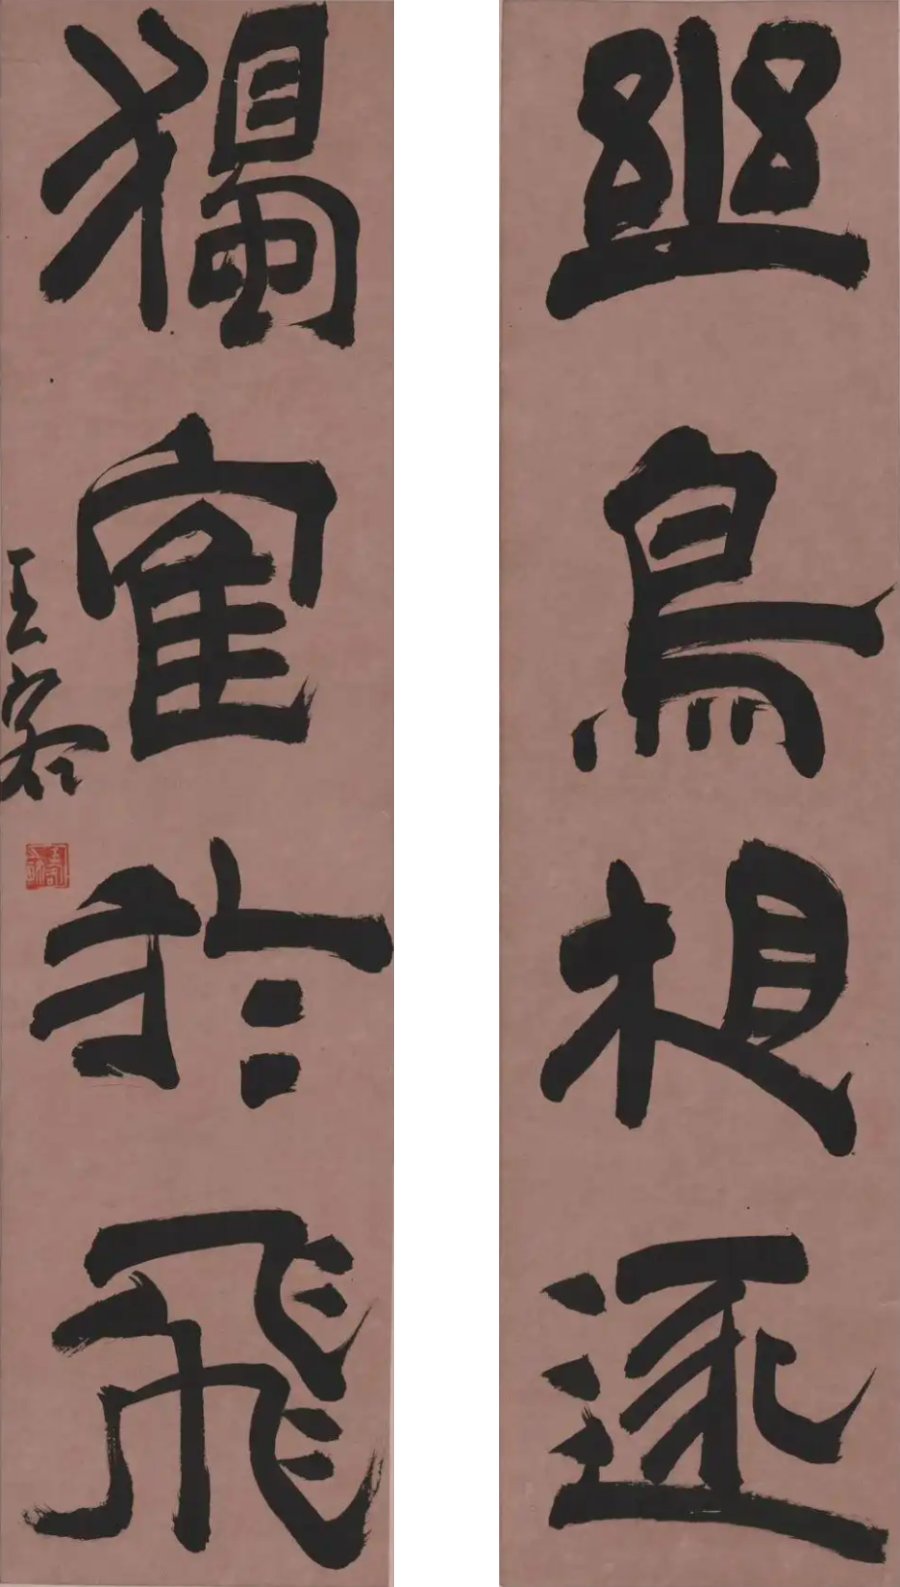 幽鳥相逐
獨寉於飛
王客